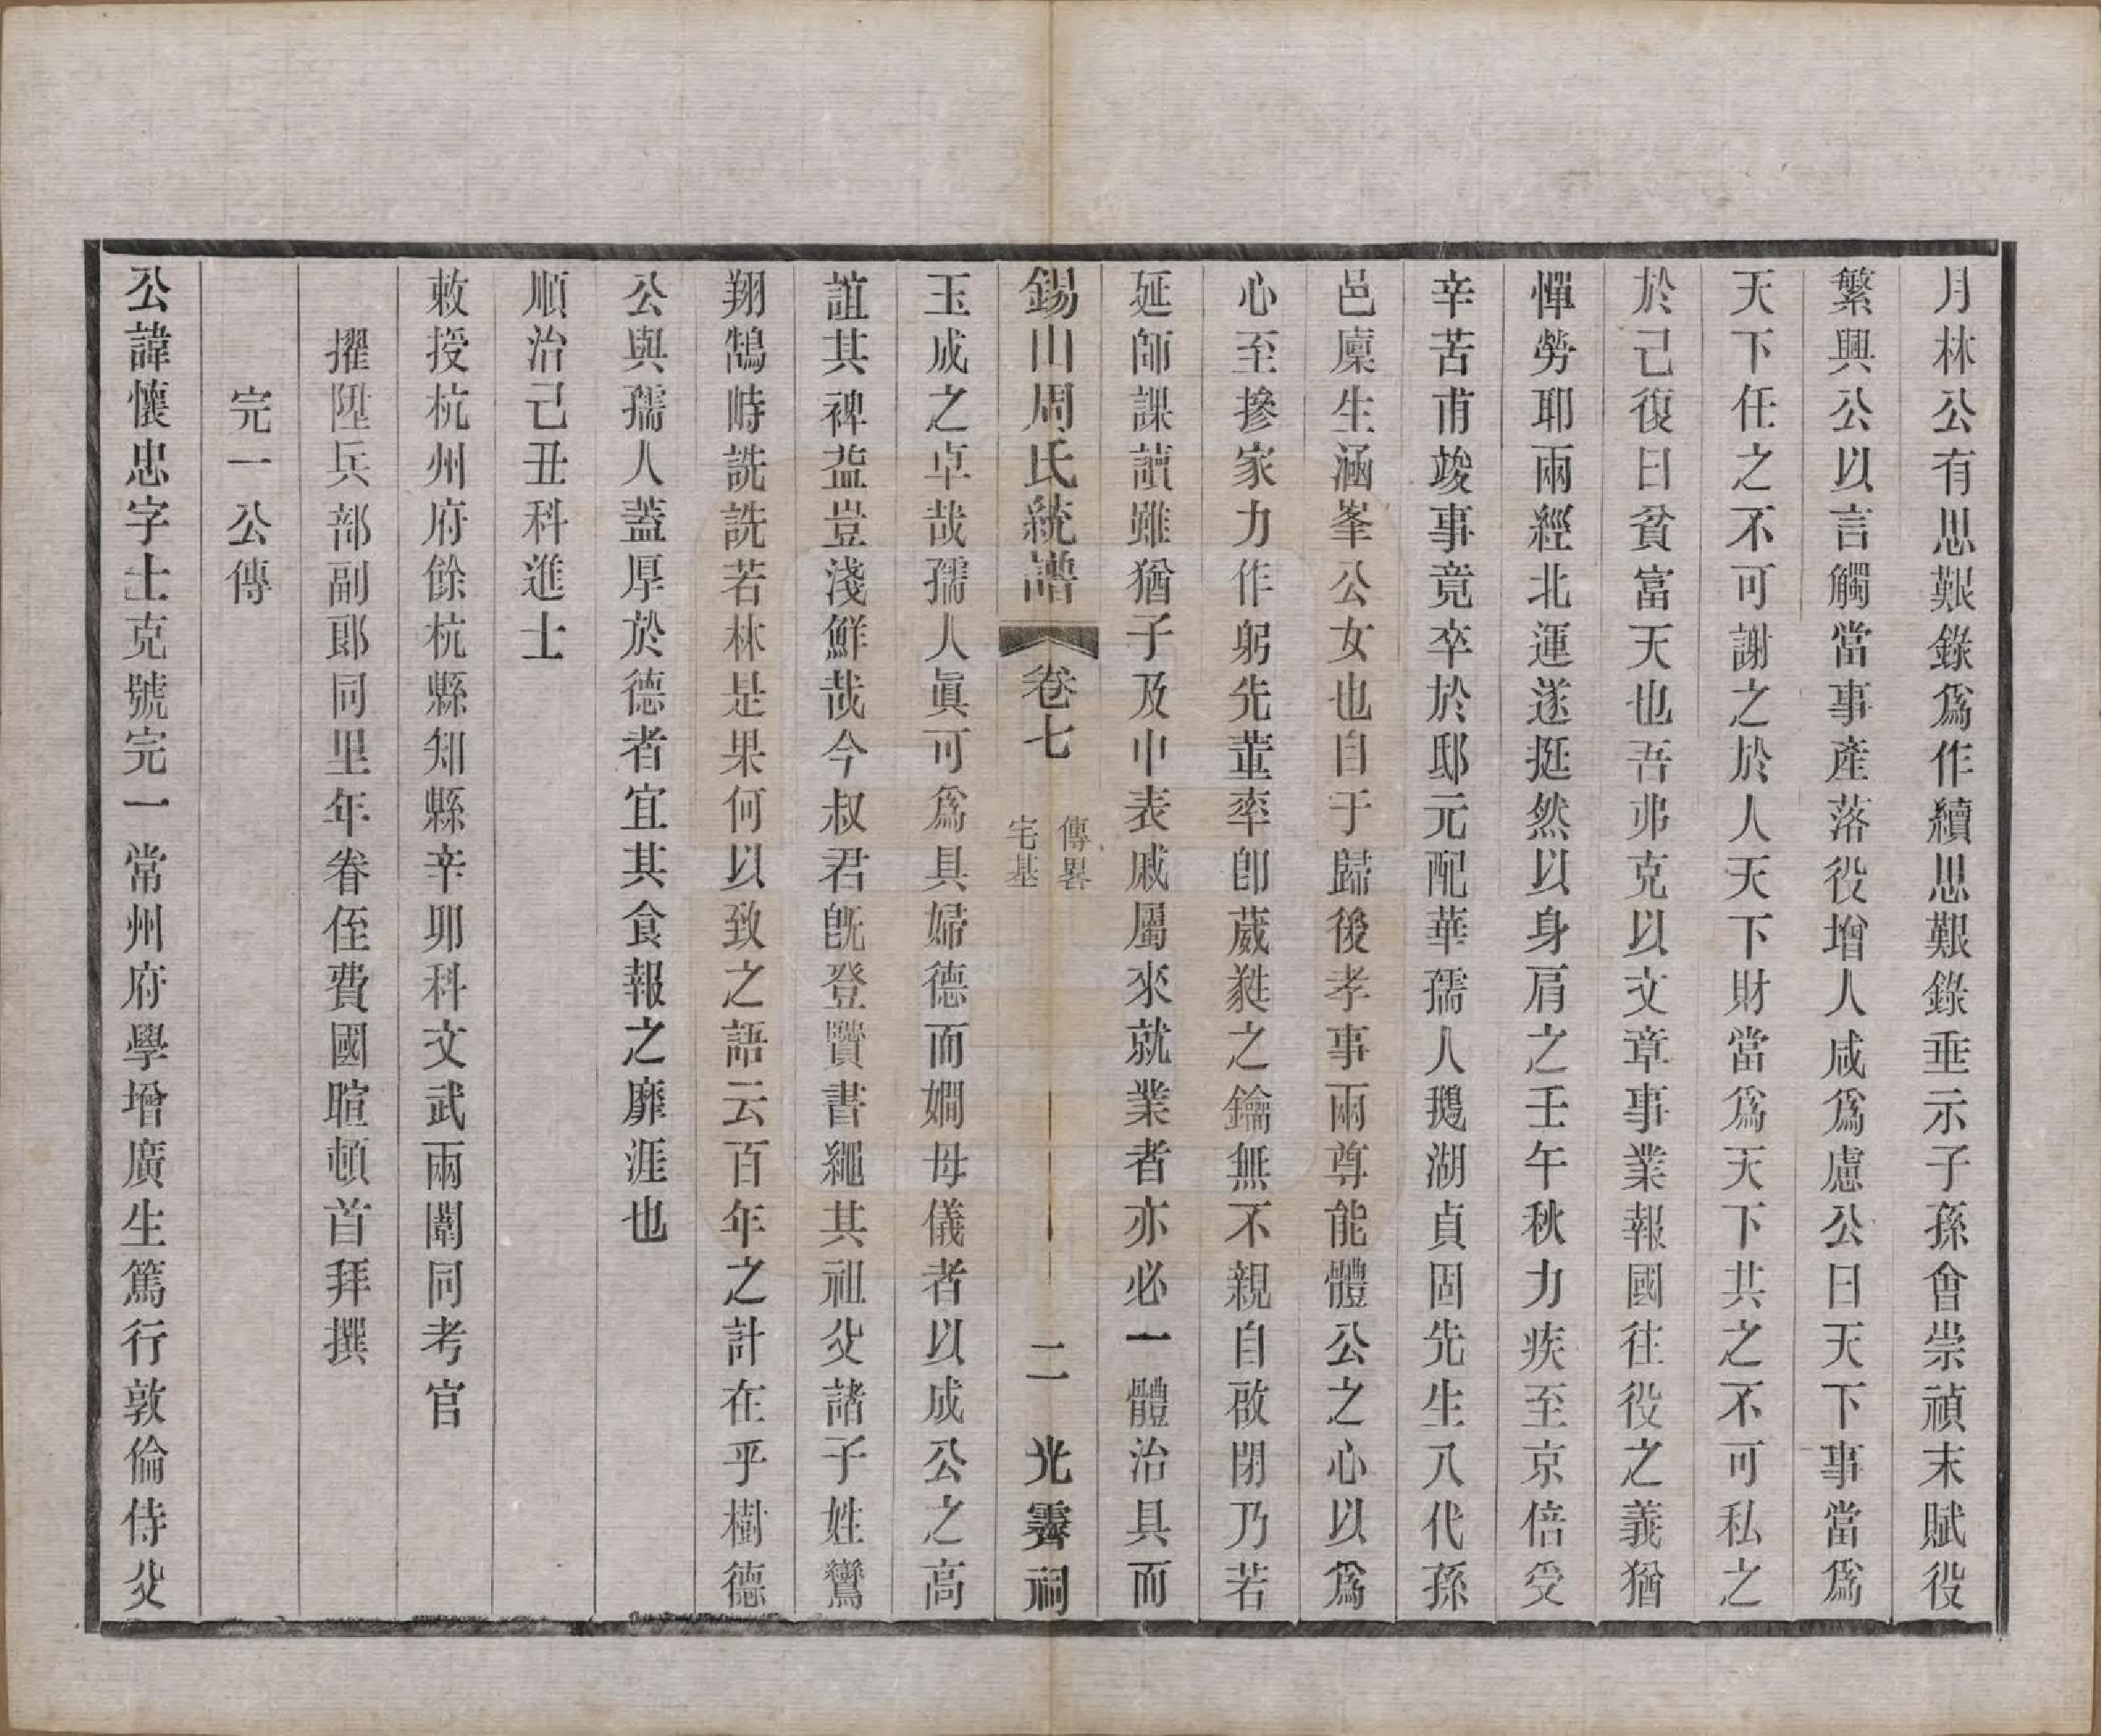 月林公有思艱錄爲作續思艱錄垂示子孫會崇禎末賦役
繁興公以言觸當事產落役增人咸爲慮公曰天下事當爲
天下任之不可謝之於人天下財當爲天下共之不可私之
於己復曰貧富天也吾弗克以文章事業報國往役之義猶
憚勞耶兩經北運遂挺然以身肩之壬午秋力疾至京倍受
辛苦甫竣事竟卒於邸元配華孺人鵝湖貞固先生八代孫
邑廩生涵峯公女也自于歸後孝事兩尊能體公之心以爲
心至摻家力作躬先藍率卽葳蕤之鑰無不親自啟閉乃若
延師課讀雖猶子及中表戚屬來就業者亦必一體治具而
錫山周氏統譜 卷七 傳畧 宅基 二 光霽祠
玉成之卓哉孺人眞可爲具婦德而嫺母儀者以成公之高
誼其裨益豈淺鮮哉今叔君旣登賢書繩其祖父諸子姓鸞
翔鵠峙詵詵若林是果何以致之語云百年之計在乎樹德
公與孺人蓋厚於德者宜其食報之靡涯也
順治己丑科進士
敕授杭州府餘杭縣知縣辛卯科文武兩闈同考官
擢陞兵部副郎同里年眷侄費國暄頓首拜撰
完一公傳
公諱懷忠字士克號完一常州府學增廣生篤行敦倫侍父